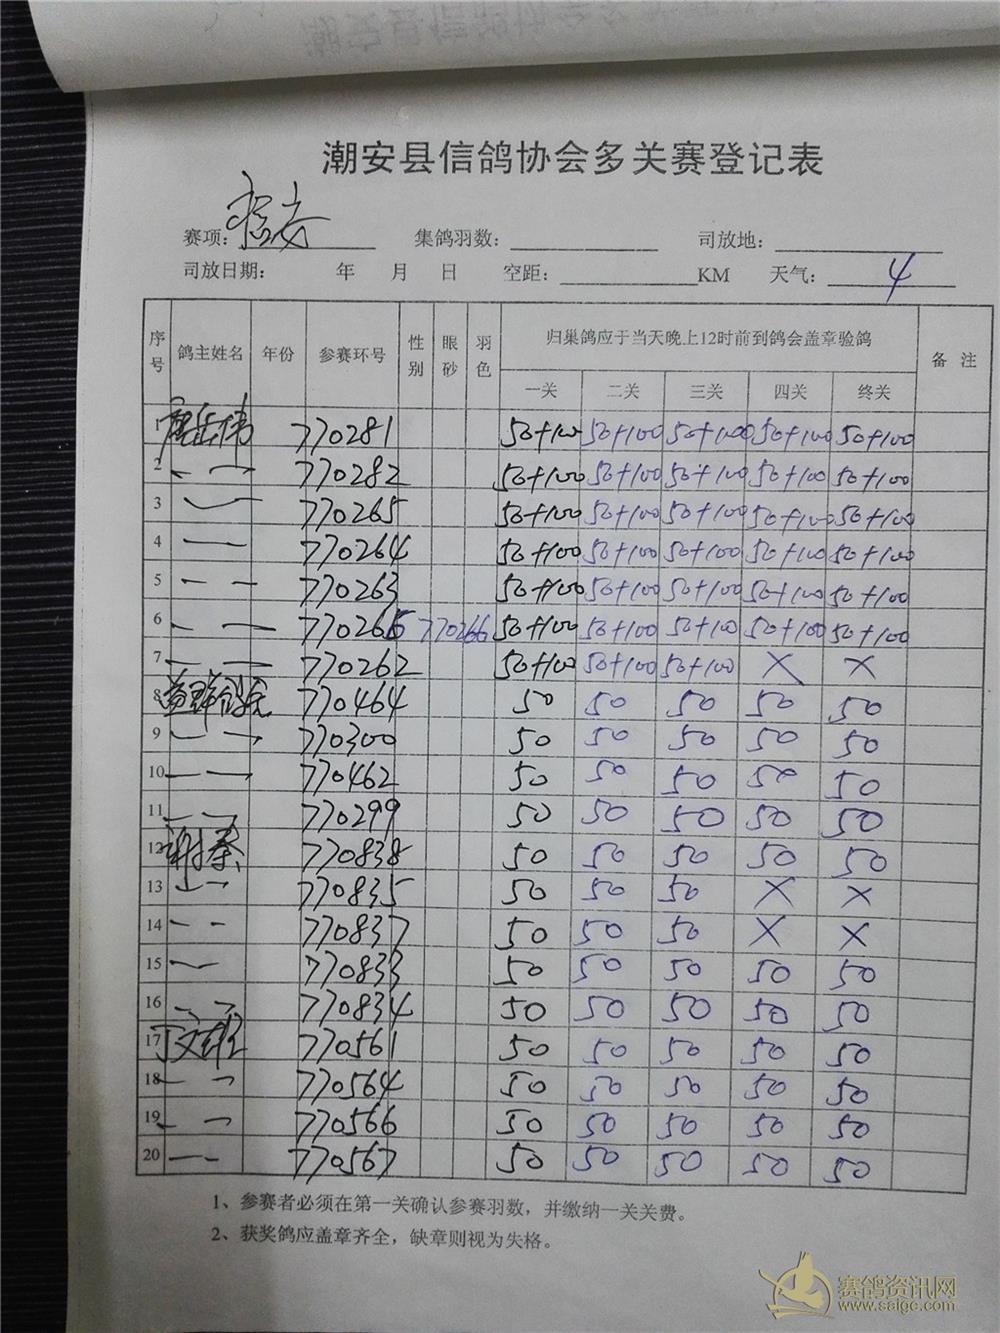 潮安县信鸽协会多关赛登记表
赛项: 集鸽羽数: 司放地:
司放日期: 年 月 日 空距: KM 天气: 4
序号 鸽主姓名 年份 参赛环号 性别 眼砂 羽色 归巢鸽应于当天晚上12时前到鸽会盖章验鸽 备 注
一关 二关 三关 四关 终关
1 770281 50+100 50+100 50+100 50+100 50+100
2 — — 770282 50+100 50+100 50+100 50+100 50+100
3 — 770265 50+100 50+100 50+100 50+100 50+100
4 — 770264 50+100 50+100 50+100 50+100 50+100
5 — — 770263 50+100 50+100 50+100 50+100 50+100
6 — — 770266 770266 50+100 50+100 50+100 50+100 50+100
7 — — 770262 50+100 50+100 50+100 × ×
8 770464 50 50 50 50 50
9 — — 770300 50 50 50 50 50
10 — — 770462 50 50 50 50 50
11 — — 770299 50 50 50 50 50
12 谢泰 770838 50 50 50 50 50
13 — — 770835 50 50 50 × ×
14 — — 770837 50 50 50 × ×
15 — 770833 50 50 50 50 50
16 — — 770834 50 50 50 50 50
17 丁文雄 770561 50 50 50 50 50
18 — — 770564 50 50 50 50 50
19 — — 770566 50 50 50 50 50
20 — — 770567 50 50 50 50 50
1、参赛者必须在第一关确认参赛羽数，并缴纳一关关费。
2、获奖鸽应盖章齐全，缺章则视为失格。
赛鸽资讯网
www.saigc.com